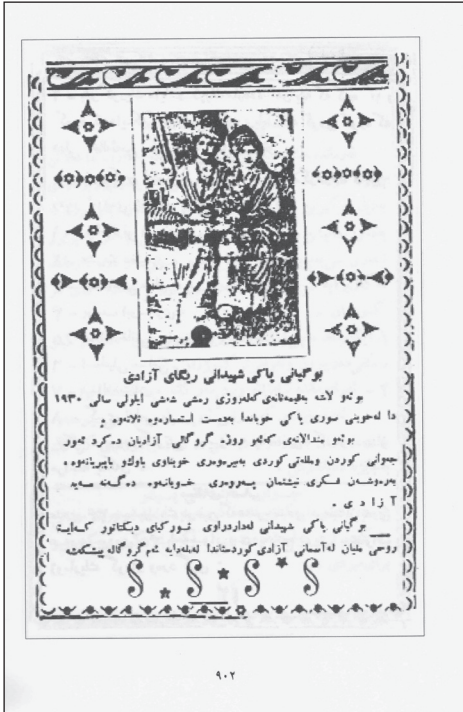 بوگیانی پاکی شهیدانی ریگای آزادی
بوئەو لاشە بەقیمەتانەی کەلەروژی رەشی شەشی ایلولی سالی ١٩٣٠
دا لەخوینی سوری پاکی خویاندا بەدەست استعمارەوە تلانەوە .
بوئەو مندالانەی کەئەو روژە گروگالی آزادیان دەکرد ئەون
جەوانی کوردن وملەتی کوردی بەبیرەوەری خویناوی باوك و باپیریانەوە .
بەرەوشەن فکری نیشتمان پەروەری خویانەوە دەگەنە
آ ز ا د ی .
بوگیانی پاکی شهیدانی لەداردراوی تورکیای دیکتاتور کەئەیە
روحی ملیان لەآسمانی آزادی کوردستاندا لەم گروگالە
٩٠٢